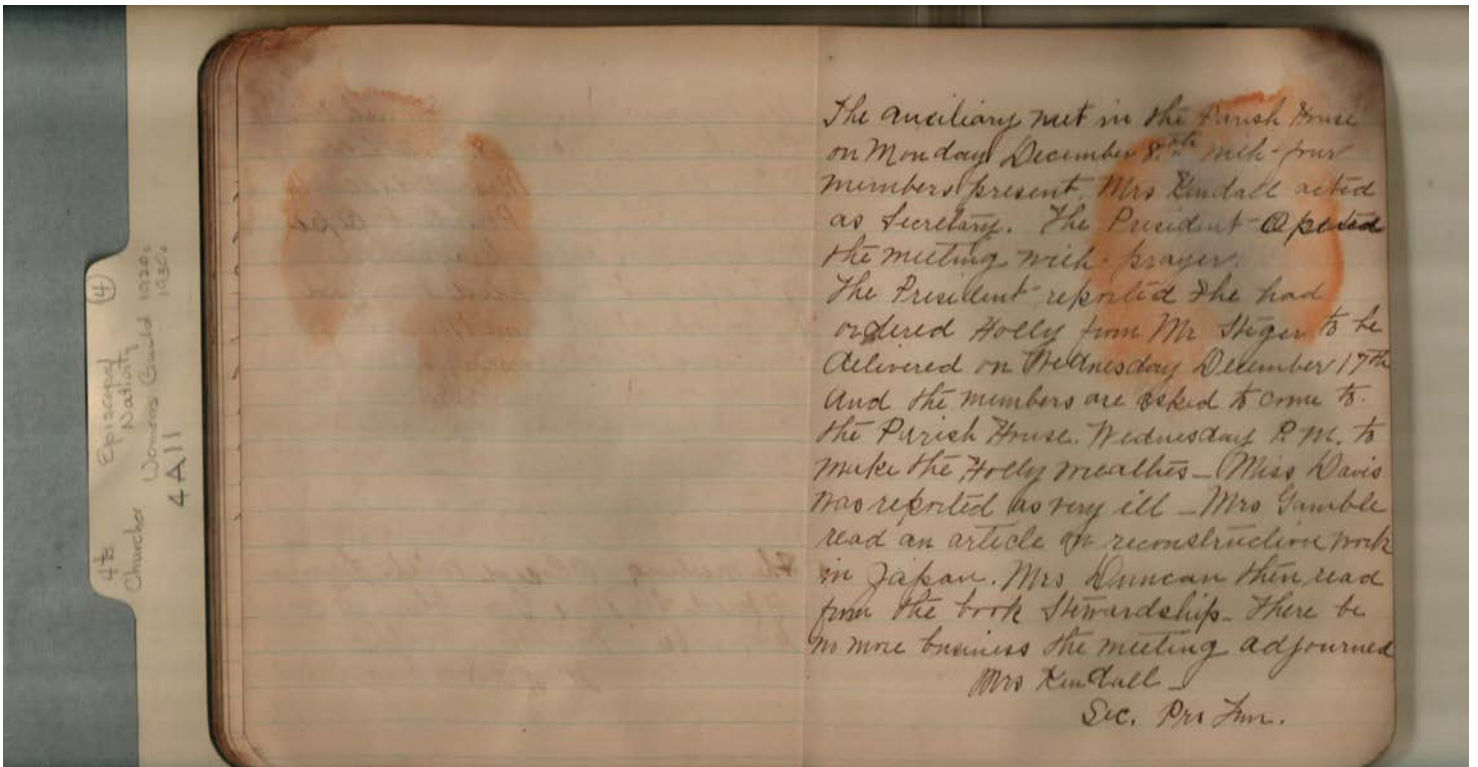 4th Episcopal (4)
Churches Nativity
Womens Guild 1920s
1930s
4A11
The auxiliary met in the Parish House
on Monday December 8th with four
members present. Mrs Kendall acted
as Secretary. The President Opened
the meeting with prayer.
The President reported she had
ordered Holly from Mr Steger to be
delivered on Wednesday December 17th
and the members are asked to come to
the Parish House. Wednesday P.M. to
make the Holly wreathes _ Miss Davis
was reported as very ill _ Mrs Gamble
read an article on reconstruction work
in Japan. Mrs Duncan then read
from the book Stewardship _ There be
no more business the meeting adjourned
Mrs Kendall _
Sec. Pro Tem.